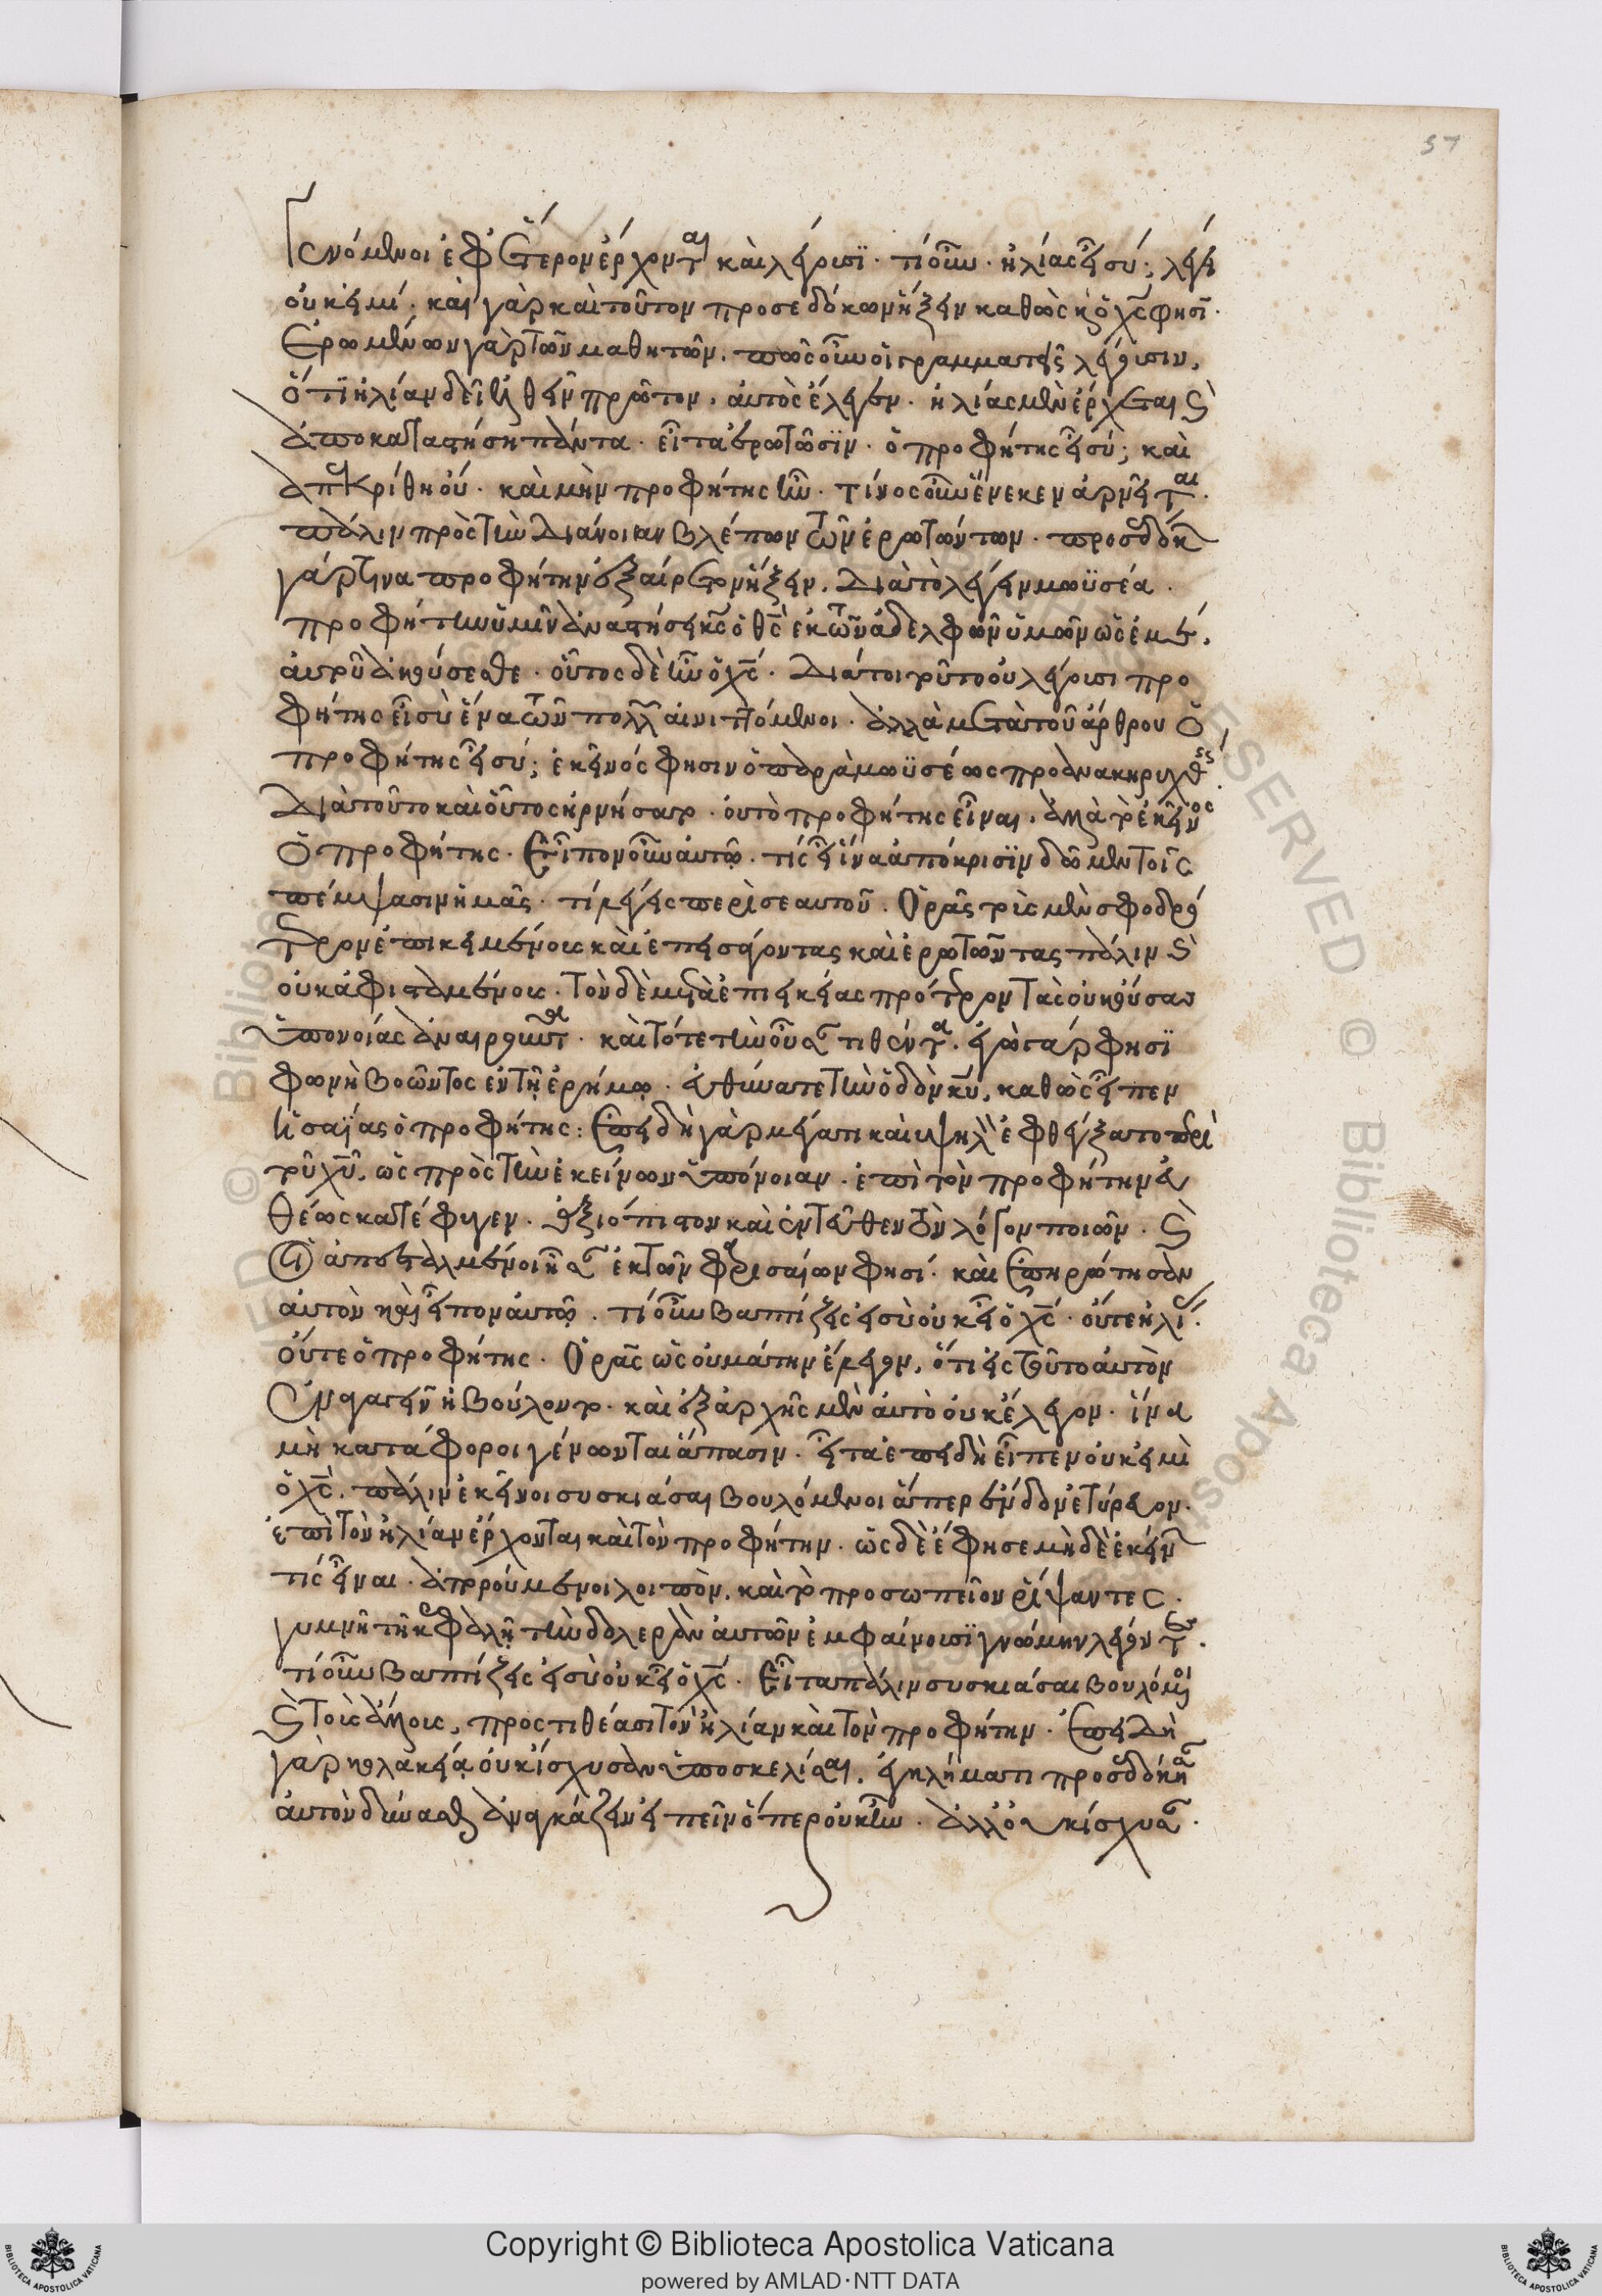 57
γενόμενοι ἐφ' ἕτερον ἔρχονται καὶ λέγουσι· τί οὖν· ἡλίας εἶ σύ; λέγει
οὐκ εἰμί· καὶ γὰρ καὶ τοῦτον προσεδόκων ἥξειν καθὼς καὶ ὁ χς φησι·
Ερομένων γὰρ τῶν μαθητῶν, πῶς οὖν οἱ γραμματεῖς λέγουσιν,
ὅτι ἡλίαν δεῖ ἐλθεῖν πρῶτον, αὐτὸς ἔλεγεν· ἡλίας μὲν ἔρχεται καὶ
ἀποκαταστήσει πάντα· εἶτα ἐρωτῶσιν· ὁ προφήτης εἶ σύ; καὶ
ἀπεκρίθη οὔ· καὶ μὴν προφήτης ἦν· τίνος οὖν ἕνεκεν ἀρνεῖται·
πάλιν πρὸς τὴν διάνοιαν βλέπων τῶν ἐρωτώντων· προσεδόκων
γάρ τινα προφήτην ἐξαίρετον ἥξειν, διὰ τὸ λέγειν μωϋσέα·
προφήτην ὑμῖν ἀναστήσει κς ὁ θς ἐκ τῶν ἀδελφῶν ὑμῶν ὡς ἐμέ,
αὐτοῦ ἀκούσεσθε· οὗτος δὲ ἦν ὁ χς· διά τοι τοῦτο οὐ λέγουσι προ
φήτης εἶ σὺ ἕνα τῶν πολλῶν αἰνιττόμενοι· ἀλλὰ μετὰ τοῦ ἄρθρου ὁ
προφήτης εἶ σύ; ἐκεῖνός φησιν ὁ παρὰ μωϋσέως προανακηρυχθείς·
Διὰ τοῦτο καὶ οὗτος ἠρνήσατο· οὐ τὸ προφήτης εἶναι, ἀλλὰ τὸ ἐκεῖνος
ὁ προφήτης· Εἶπον οὖν αὐτῷ· τίς εἶ ἵνα ἀπόκρισιν δῶμεν τοῖς
πέμψασιν ἡμᾶς· τί λέγεις περὶ σεαυτοῦ· Ορᾷς τοὺς μὲν σφοδρό
τερον ἐπικειμένους καὶ ἐπείγοντας καὶ ἐρωτῶντας πάλιν καὶ
οὐκ ἀφισταμένους· τὸν δὲ μετὰ ἐπιεικείας πρότερον τὰς οὐκ οὔσας
ὑπονοίας ἀναιροῦντα· καὶ τότε τὴν οὖσαν τιθέντα· ἐγὼ γάρ φησι
φωνὴ βοῶντος ἐν τῇ ἐρήμῳ· εὐθύνατε τὴν ὁδὸν κυ, καθὼς εἶπεν
ἡσαΐας ὁ προφήτης: Επειδὴ γὰρ μέγα τι καὶ ὑψηλὸν ἐφθέγξατο περὶ
τοῦ χυ, ὡς πρὸς τὴν ἐκείνων ὑπόνοιαν· ἐπὶ τὸν προφήτην εὐ
θέως κατέφυγεν· ἀξιόπιστον καὶ ἐντεῦθεν τὸν λόγον ποιῶν· καὶ
οἱ ἀπεσταλμένοι ἦσαν ἐκ τῶν φαρισαίων φησί· καὶ ἐπηρώτησαν
αὐτὸν καὶ εἶπον αὐτῷ· τί οὖν βαπτίζεις εἰ σὺ οὐκ εἶ ὁ χς· οὔτε ἡλίας·
οὔτε ὁ προφήτης· Ορᾷς ὡς οὐ μάτην ἔλεγον, ὅτι εἰς τοῦτο αὐτὸν
ἐναγαγεῖν ἠβούλοντο· καὶ ἐξ ἀρχῆς μὲν αὐτὸ οὐκ ἔλεγον· ἵνα
μὴ κατάφοροι γένωνται ἅπασιν· εἶτα ἐπειδὴ εἶπεν οὐκ εἰμὶ
ὁ χς, πάλιν ἐκεῖνοι συσκιάσαι βουλόμενοι ἅπερ ἔνδον ἐτύρευον·
ἐπὶ τὸν ἡλίαν ἔρχονται καὶ τὸν προφήτην· ὡς δὲ ἔφησε μὴ δὲ ἐκείνων
τίς εἶναι· ἀπορούμενοι λοιπὸν, καὶ τὸ προσωπεῖον ῥίψαντες·
γυμνῇ τῇ κεφαλῇ τὴν δολερὰν αὐτῶν ἐμφαίνουσι γνώμην λέγοντες·
τί οὖν βαπτίζεις εἰ σὺ οὐκ εἶ ὁ χς· Εἶτα πάλιν συσκιάσαι βουλόμενοι
καὶ τοὺς ἄλλους, προστιθέασι τὸν ἡλίαν καὶ τὸν προφήτην· Επειδὴ
γὰρ κολακείᾳ οὐκ ἴσχυσαν ὑποσκελίσαι, ἐγκλήματι προσεδόκησαν
αὐτὸν δύνασθαι ἀναγκάζειν εἰπεῖν ὅπερ οὐκ ἦν· ἀλλ' οὐκ ἴσχυσαν·
Copyright © Biblioteca Apostolica Vaticana
powered by AMLAD·NTT DATA